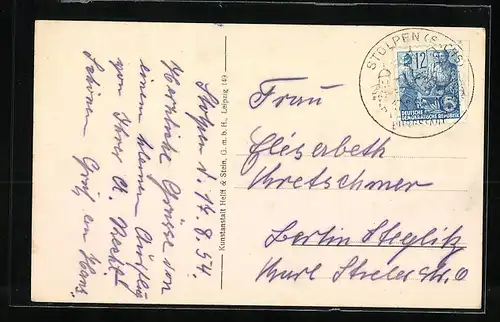 Stolpen d. 17.8.54.
Herzliche Grüsse von
einem kleinen Ausflug
von Ihrer
Schönen Gruß an Hans.
Kunstanstalt Helff & Stein, G. m. b. H., Leipzig
STOLPEN (SACHS)
12
DEUTSCHE
DEMOKRATISCHE REPUBLIK
Frau
Elisabeth
Kretschmer
Berlin Steglitz
Karl